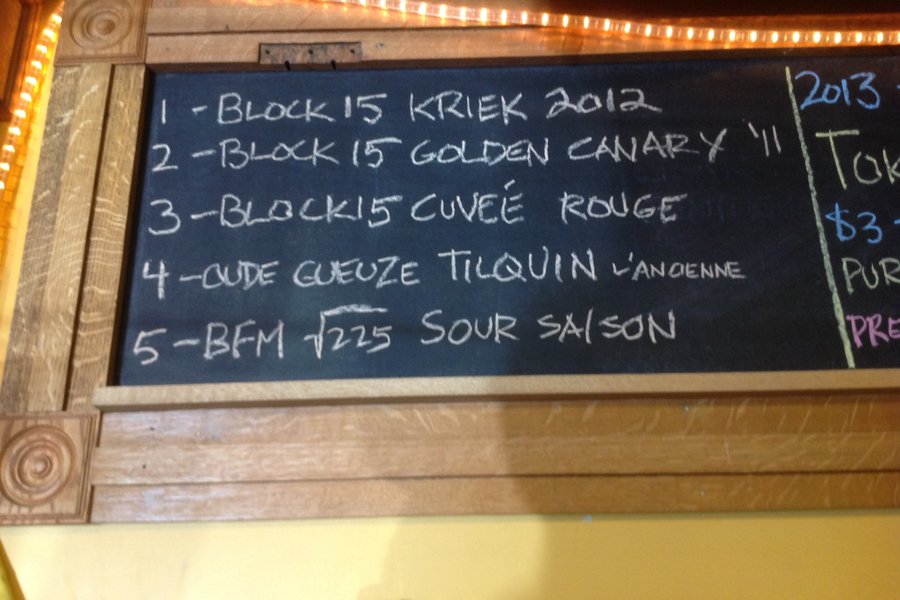 1 - BLOCK 15 KRIEK 2012
2 - BLOCK 15 GOLDEN CANARY '11
3 - BLOCK 15 CUVEÉ ROUGE
4 - OUDE GUEUZE TILQUIN L'ANCIENNE
5 - BFM √225 SOUR SAISON
2013 -
TOK
$3 -
PUR
PRE